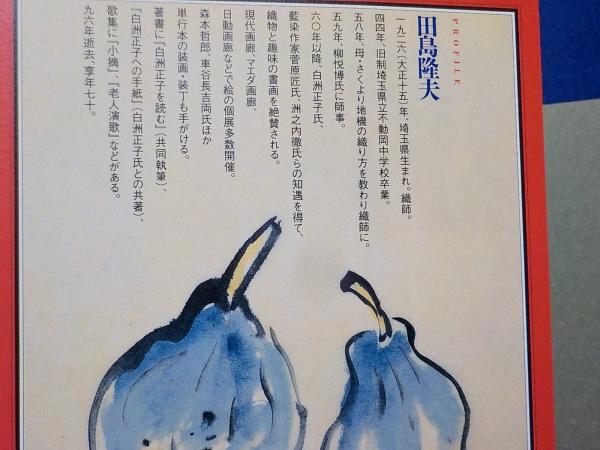 PROFILE
田島隆夫
一九二六(大正十五)年、埼玉県生まれ。織師。
四四年、旧制埼玉県立不動岡中学校卒業。
五八年、母・さくより地機の織り方を教わり織師に。
五九年、柳悦博氏に師事。
六〇年以降、白洲正子氏、
藍染作家菅原匠氏、洲之内徹氏らの知遇を得て、
織物と趣味の書画を絶賛される。
現代画廊、マエダ画廊、
日動画廊などで絵の個展多数開催。
森本哲郎、車谷長吉両氏ほか
単行本の装画・装丁も手がける。
著書に『白洲正子を読む』(共同執筆)、
『白洲正子への手紙』(白洲正子氏との共著)、
歌集に『小摘』、『老人演歌』などがある。
九六年逝去、享年七十。